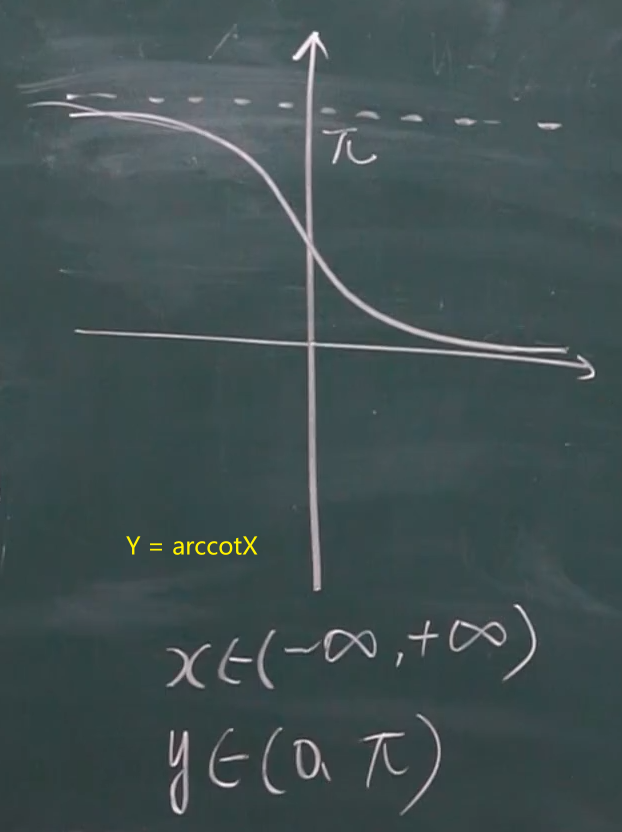 π
Y = arccotX
x∈(-∞,+∞)
y∈(0,π)